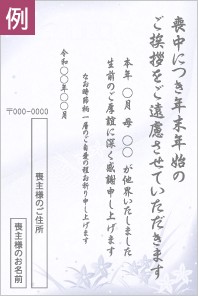 例
喪中につき年末年始の
ご挨拶をご遠慮させていただきます
本年 〇月 母 〇〇 が他界いたしました
生前のご厚誼に深く感謝申し上げます
なお時節柄一層のご自愛の程お祈り申し上げます
令和〇〇年〇〇月
〒000-0000
喪主様のご住所
喪主様のお名前